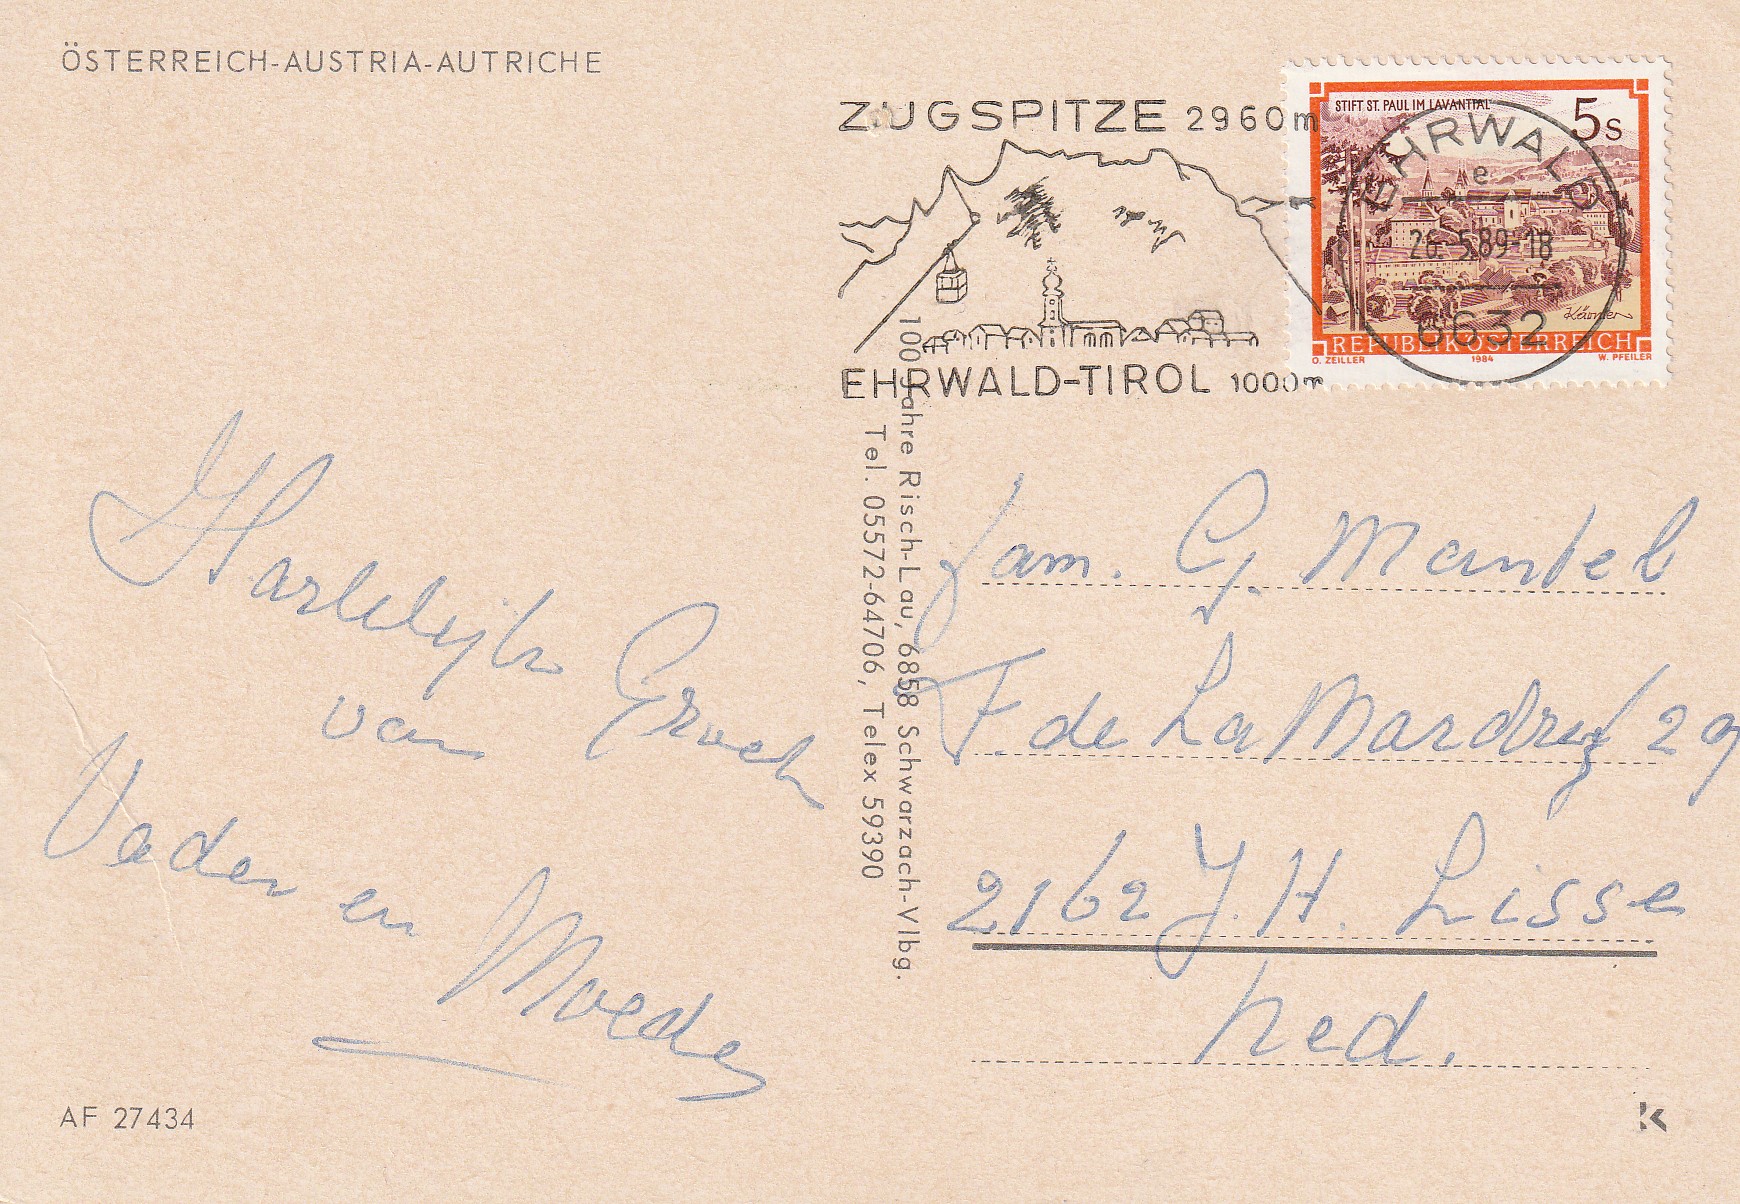 ÖSTERREICH-AUSTRIA-AUTRICHE
ZUGSPITZE 2960m
EHRWALD-TIROL 1000m
STIFT ST. PAUL IM LAVANTTAL
5s
Kärnten
REPUBLIK ÖSTERREICH
O. ZEILLER 1984 W. PFEILER
EHRWALD
e
26.-5.89-18
6632
100 Jahre Risch-Lau, 6858 Schwarzach-Vlbg.
Tel. 05572-64706, Telex 59390
Hartelijk
van Groet
Vader en Moeder
fam. G. Mantel
F de La Mardrey 29
2162 J.H. Lisse
Ned.
AF 27434
K